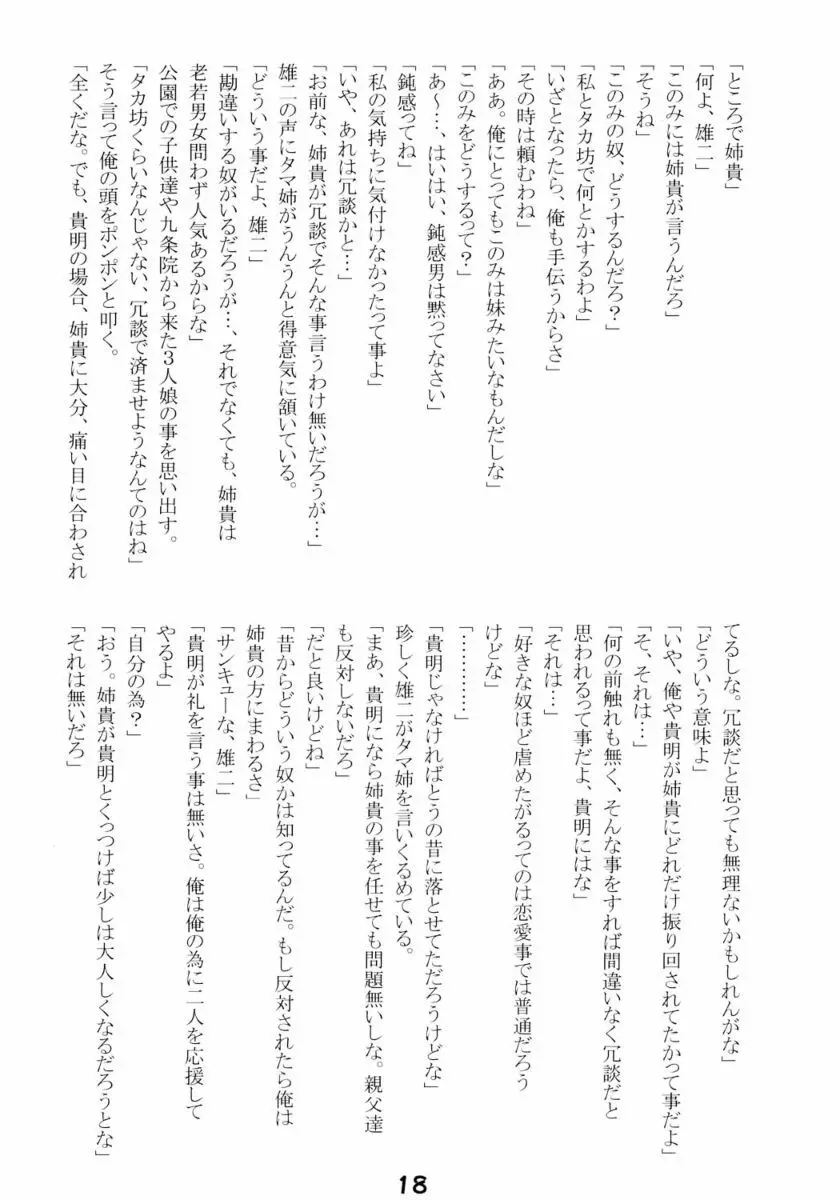 「ところで姉貴」
「何よ、雄二」
「このみには姉貴が言うんだろ」
「そうね」
「このみの奴、どうするんだろ？」
「私とタカ坊で何とかするわよ」
「いざとなったら、俺も手伝うからさ」
「その時は頼むわね」
「ああ。俺にとってもこのみは妹みたいなもんだしな」
「このみをどうするって？」
「あ～…、はいはい、鈍感男は黙ってなさい」
「鈍感ってね」
「私の気持ちに気付けなかったって事よ」
「いや、あれは冗談かと…」
「お前な、姉貴が冗談でそんな事言うわけ無いだろうが…」
雄二の声にタマ姉がうんうんと得意気に頷いている。
「どういう事だよ、雄二」
「勘違いする奴がいるだろうが…、それでなくても、姉貴は
老若男女問わず人気あるからな」
公園での子供達や九条院から来た３人娘の事を思い出す。
「タカ坊くらいなんじゃない、冗談で済ませようなんてのはね」
そう言って俺の頭をポンポンと叩く。
「全くだな。でも、貴明の場合、姉貴に大分、痛い目に合わされ
てるしな。冗談だと思っても無理ないかもしれんがな」
「どういう意味よ」
「いや、俺や貴明が姉貴にどれだけ振り回されてたかって事だよ」
「そ、それは…」
「何の前触れも無く、そんな事をすれば間違いなく冗談だと
思われるって事だよ、貴明にはな」
「それは…」
「好きな奴ほど虐めたがるってのは恋愛事では普通だろう
けどな」
「…………」
「貴明じゃなければとうの昔に落とせてただろうけどな」
珍しく雄二がタマ姉を言いくるめている。
「まあ、貴明になら姉貴の事を任せても問題無いしな。親父達
も反対しないだろ」
「だと良いけどね」
「昔からどういう奴かは知ってるんだ。もし反対されたら俺は
姉貴の方にまわるさ」
「サンキューな、雄二」
「貴明が礼を言う事は無いさ。俺は俺の為に二人を応援して
やるよ」
「自分の為？」
「おう。姉貴が貴明とくっつけば少しは大人しくなるだろうとな」
「それは無いだろ」
18